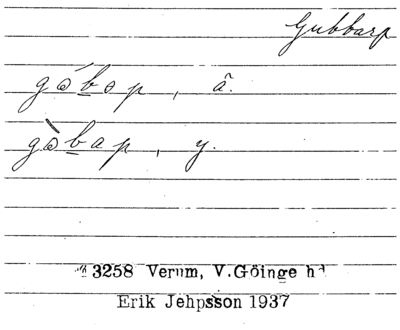 Gubbarp
gɔ́bɔp, â.
gɔ̀bap, y.
3258 Verum, V.Göinge hd
Erik Jehpsson 1937